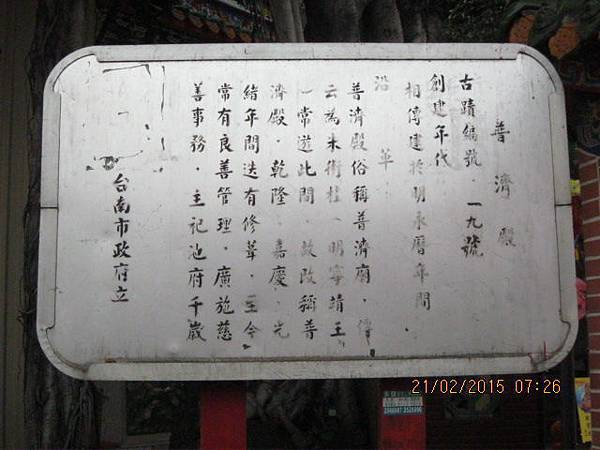 普濟殿
古蹟編號．一九號
創建年代
相傳建於明永曆年間．
沿革
普濟殿俗稱普濟廟．傳
云為朱術桂（明寧靖王
）常遊此間．故改稱普
濟殿．乾隆．嘉慶．光
緒年間迭有修葺．至今
常有良善管理．廣施慈
善事務．主祀池府千歲
台南市政府立
21/02/2015 07:26